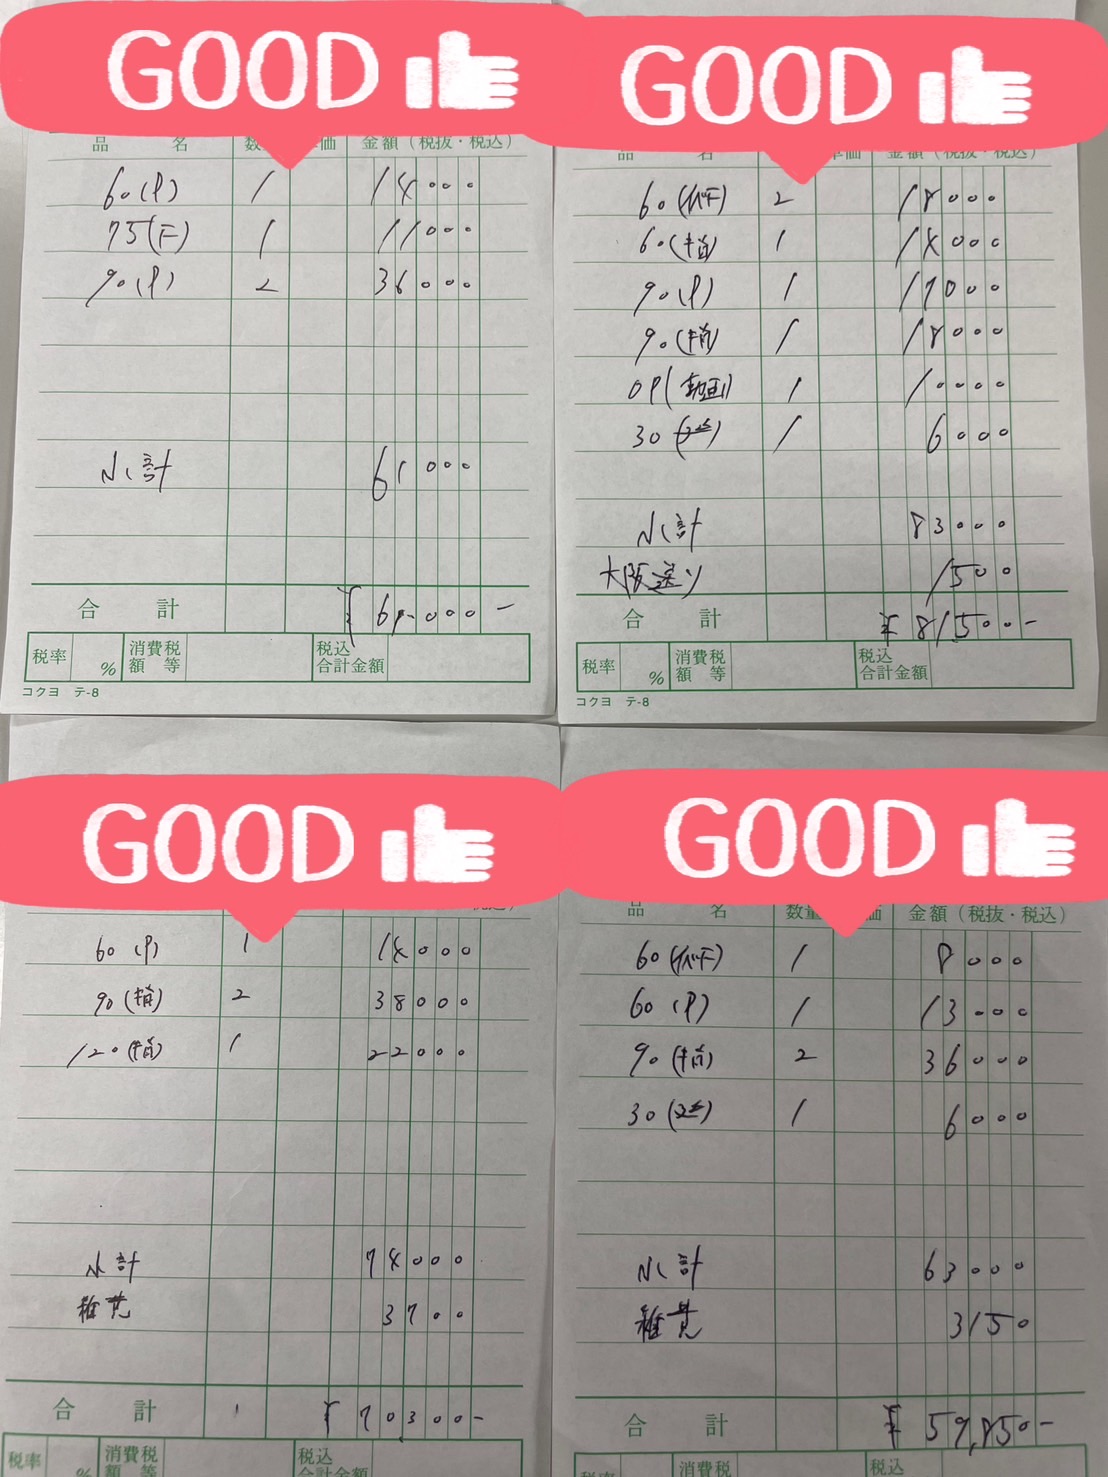 GOOD
品 名 数 価 金額(税抜・税込)
60(P) 1 14000
75(F) 1 11000
90(P) 2 36000
小計 61000
合計 ¥61,000-
税率 % 消費税額等 税込合計金額
コクヨ テ-8
GOOD
品 名 単価 金額(税抜・税込)
60(イベF) 2 18000
60(指) 1 14000
90(P) 1 17000
90(指) 1 18000
OP(動画) 1 10000
30(延) 1 6000
小計 83000
大阪送り 1500
合計 ¥81500-
税率 % 消費税額等 税込合計金額
コクヨ テ-8
GOOD
60(P) 1 14000
90(指) 2 38000
120(指) 1 22000
小計 74000
雑費 3700
合計 ¥70300-
税率 % 消費税額等 税込合計金額
GOOD
品 名 数量 価 金額(税抜・税込)
60(イベF) 1 8000
60(P) 1 13000
90(指) 2 36000
30(延) 1 6000
小計 63000
雑費 3150
合計 ¥59,850-
税率 消費税 税込